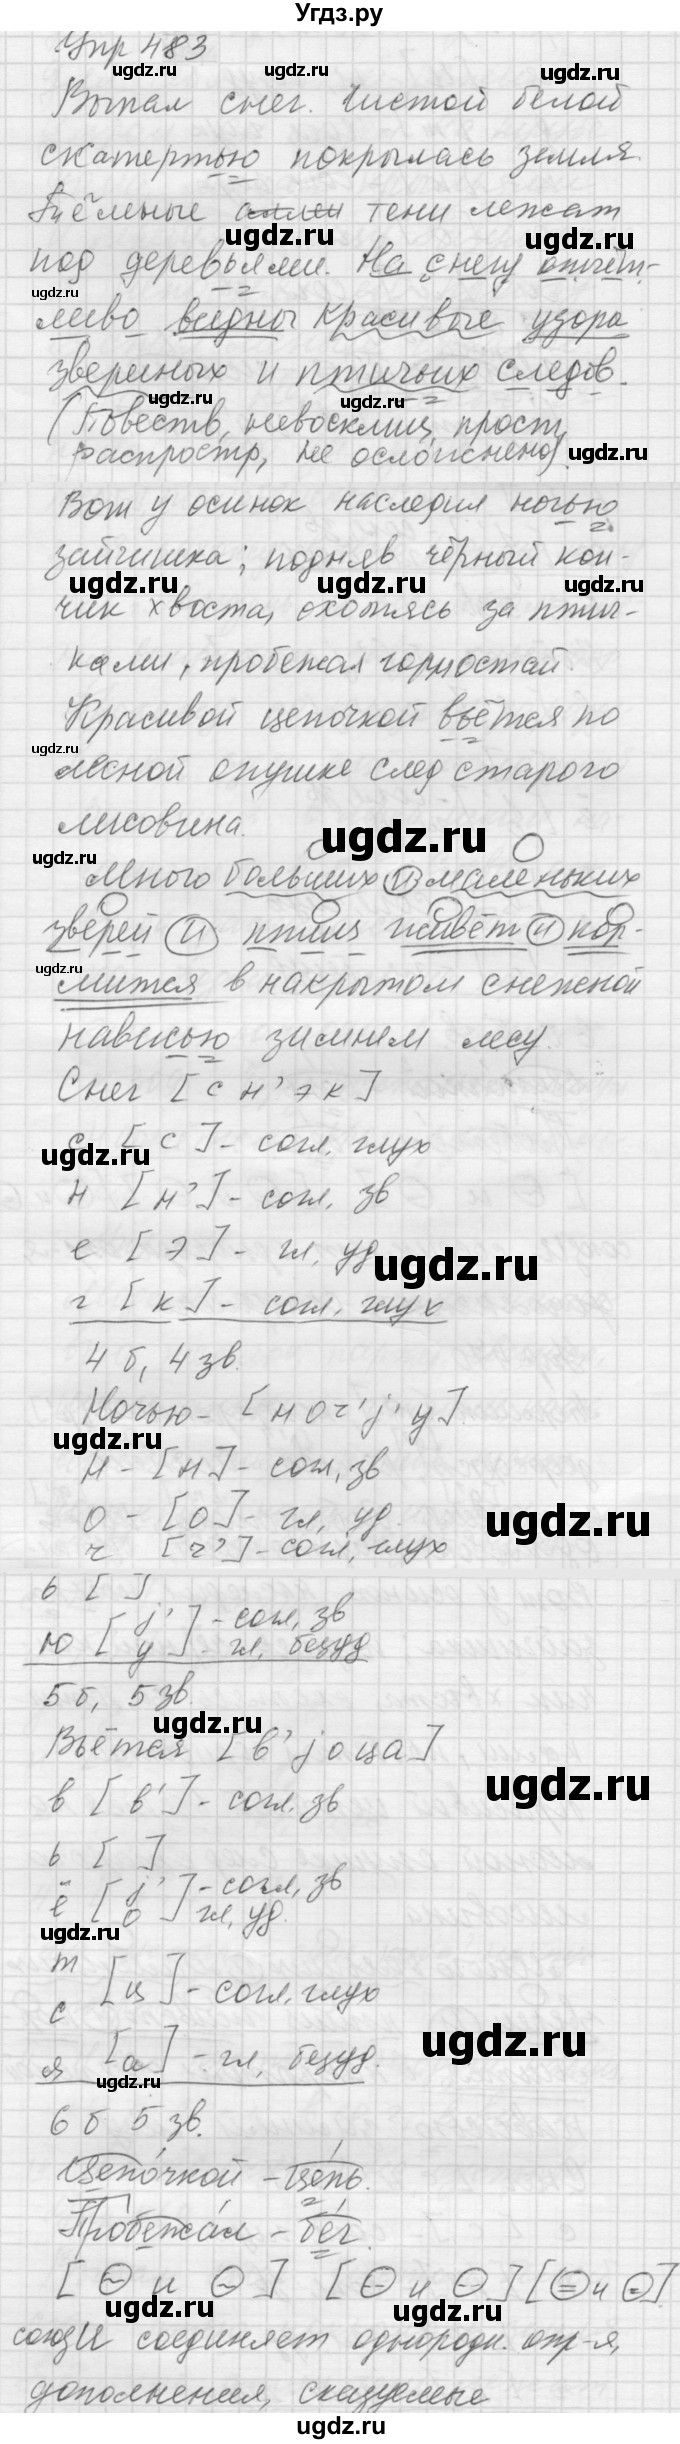 Угдз.ру
Упр 483
Выпал снег. Чистой белой
скатертью покрылась земля.
тени лежат
под деревьями. На снегу отчёт-
ливо видны красивые узора
звериных и птичьих следов.
(Повеств, невосклиц, прост,
распростр, не осложнено).
Вот у осинок наследил ночью
зайчишка; подняв чёрный кон-
чик хвоста, охотясь за птич-
ками, пробежал горностай.
Красивой цепочкой вьётся по
лесной опушке след старого
лисовина.
Много больших и маленьких
зверей и птиц живёт и кор-
мится в накрытом снежной
нависью зимнем лесу.
Снег [с н' э к]
с [с] - согл, глух
н [н'] - согл, зв
е [э] - гл, уд
г [к] - согл, глух
4 б, 4 зв.
Ночью - [н о ч' j' у].
н - [н] - согл, зв
о - [о] - гл, уд.
ч [ч'] - согл, глух
ь [ ]
ю [j' у] - согл, зв - гл, безуд
5 б, 5 зв.
Вьётся [в' j о ц а]
в [в'] - согл. зв
ь [ ]
ё [j' о] - согл, зв гл, уд.
т с [ц] - согл, глух
я [а] - гл, безуд.
6 б 5 зв.
Цепочкой - цепь.
Пробежал - бег.
[ и ] [ и ] [ и ].
союз И соединяет однородн. опр-я,
дополнения, сказуемые
ugdz.ru